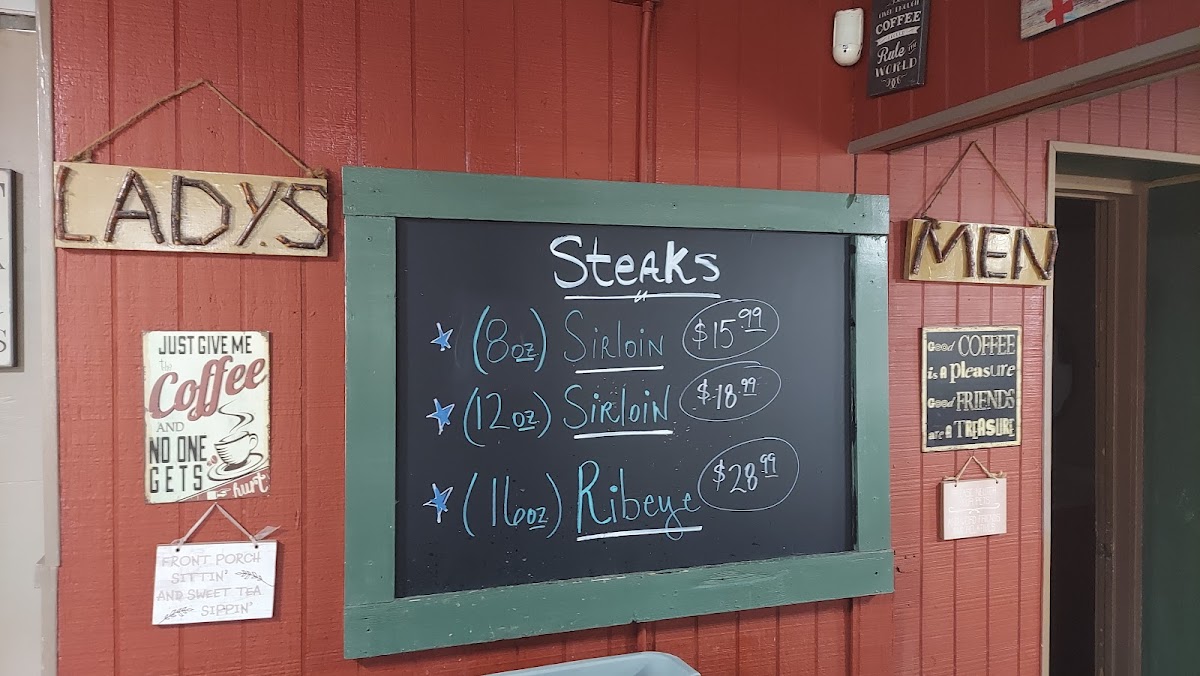 COFFEE
Rule THE
WORLD
LADYS
MEN
Steaks
(8oz) Sirloin $15.99
(12oz) Sirloin $18.99
(16oz) Ribeye $28.99
JUST GIVE ME
the
Coffee
AND
NO ONE
GETS
hurt
FRONT PORCH
SITTIN'
AND SWEET TEA
SIPPIN'
Good COFFEE
is A pleasure
Good FRIENDS
are A TREASURE